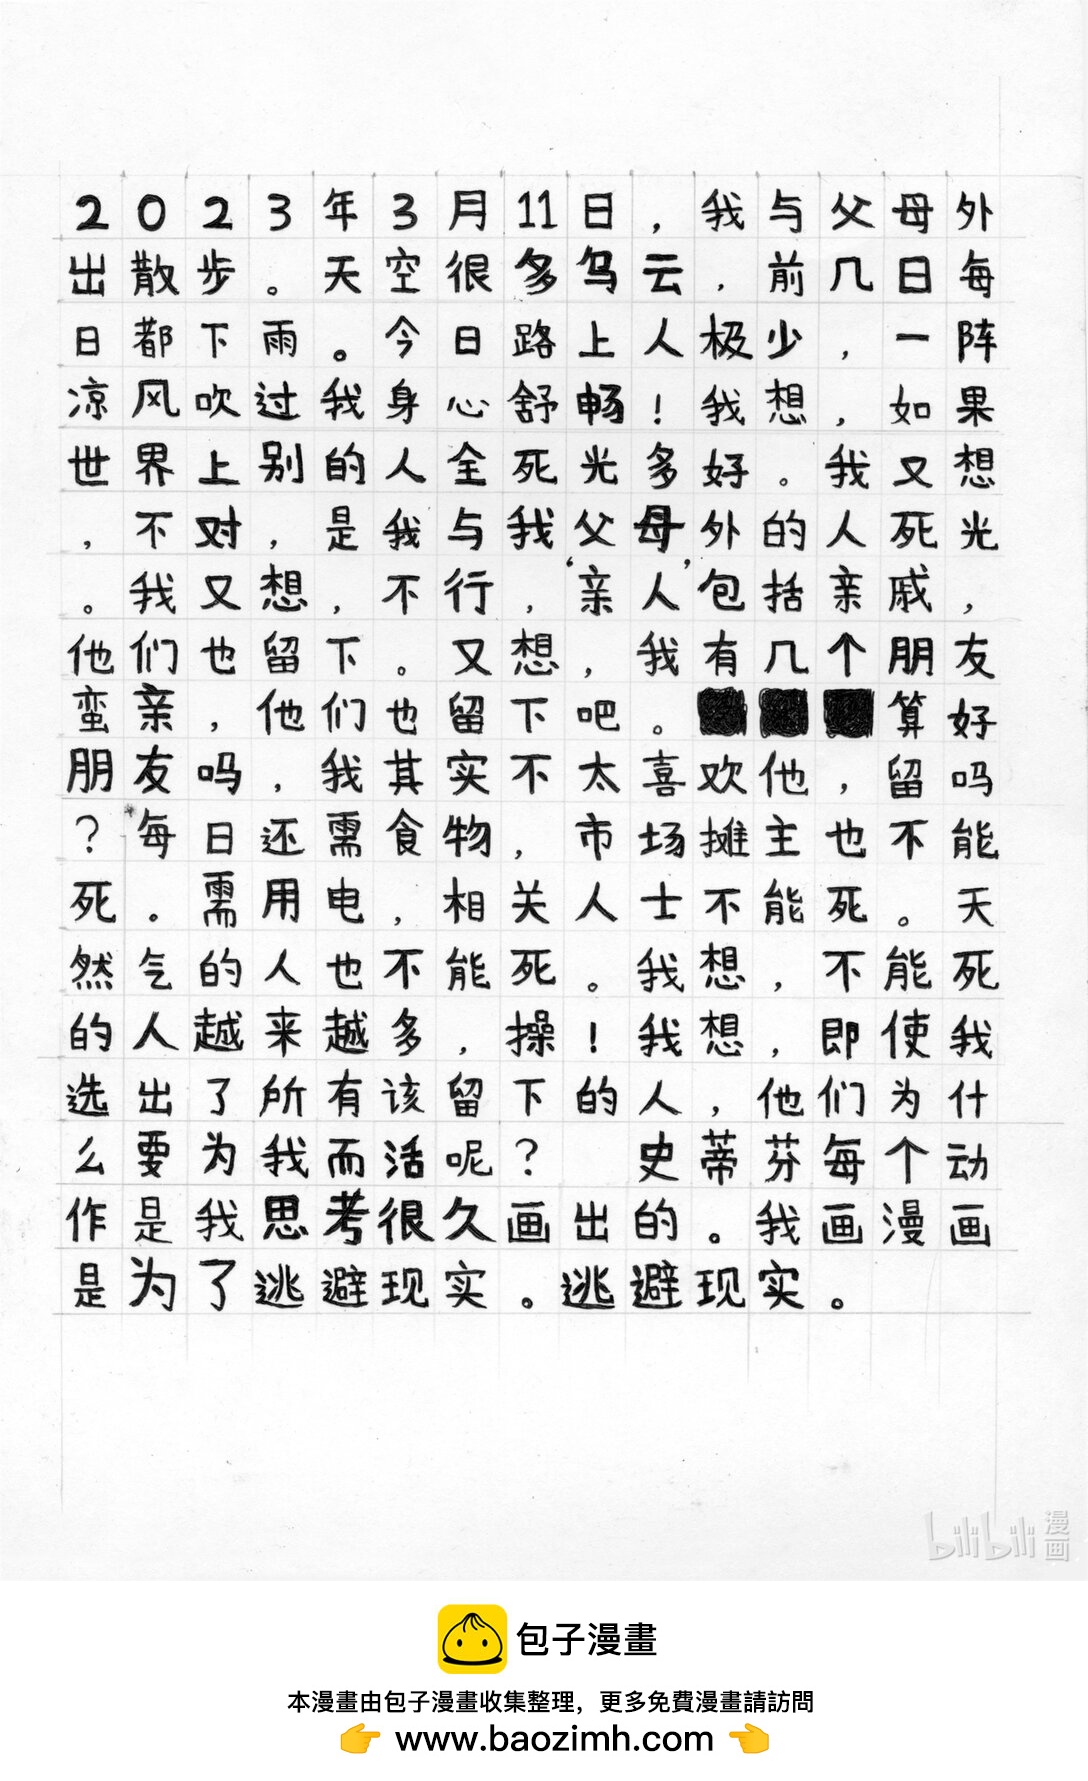 2023年3月11日，我与父母外
出散步。天空很多乌云，前几日每
日都下雨。今日路上人极少，一阵
凉风吹过我身心舒畅！我想，如果
世界上别的人全死光多好。我又想
，不对，是我与我父母外的人死光
。我又想，不行，‘亲人’包括亲戚，
他们也留下。又想，我有几个朋友
蛮亲，他们也留下吧。■■■算好
朋友吗，我其实不太喜欢他，留吗
？每日还需食物，市场摊主也不能
死。需用电，相关人士不能死。天
然气的人也不能死。我想，不能死
的人越来越多，操！我想，即使我
选出了所有该留下的人，他们为什
么要为我而活呢？　史蒂芬每个动
作是我思考很久画出的。我画漫画
是为了逃避现实。逃避现实。
bilibili漫画
包子漫畫
本漫畫由包子漫畫收集整理，更多免費漫畫請訪問
👉 www.baozimh.com 👈